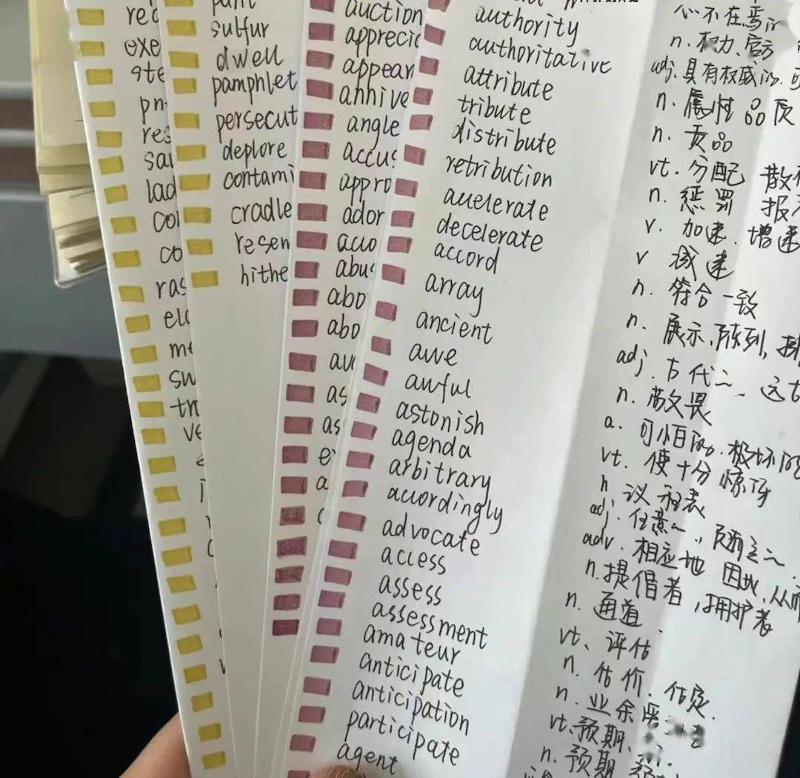 exe
res
lad
co
ras
me
sw
ve
sulfur
dwell
pamphlet
persecut
deplore
contami
cradle
resen
hithe
auction
apprecia
appear
annive
angle
accus
appro
ador
acco
abus
abo
abo
as
as
心不在焉
authority n. 权力、官方
authoritative adj. 具有权威的、可
attribute n. 属性 品质
tribute n. 贡品
distribute vt. 分配 散布
retribution n. 惩罚 报
accelerate v. 加速、增速
decelerate v 减速
accord n. 符合一致
array n. 展示,陈列,排
ancient adj. 古代
awe n. 敬畏
awful a. 可怕的、极坏的
astonish vt. 使十分惊讶
agenda n 议程表
arbitrary adj. 任意
accordingly adv. 相应地 因此,从而
advocate n. 提倡者,拥护者
access n. 通道
assess vt. 评估
assessment n. 估价、估定
amateur n. 业余
anticipate vt. 预期
anticipation n. 预期
participate
agent